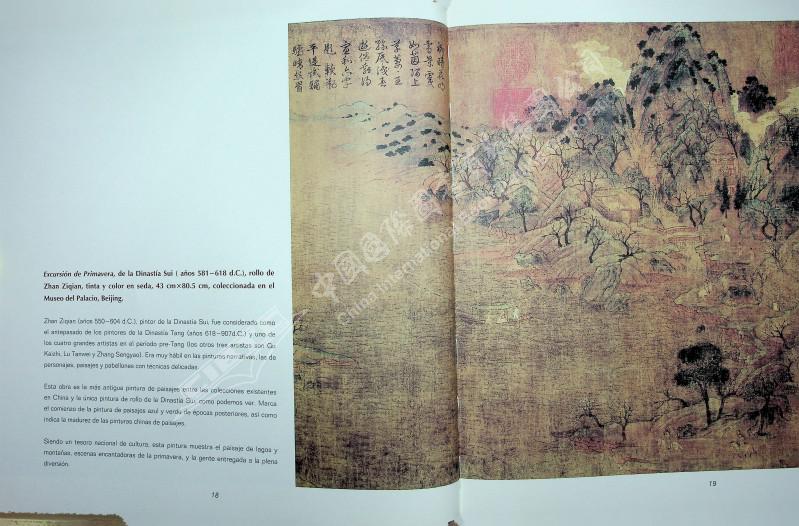 Excursión de Primavera, de la Dinastía Sui ( años 581−618 d.C.), rollo de
Zhan Ziqian, tinta y color en seda, 43 cm×80.5 cm, coleccionada en el
Museo del Palacio, Beijing.
Zhan Ziqian (años 550−604 d.C.), pintor de la Dinastía Sui, fue considerado como
el antepasado de los pintores de la Dinastía Tang (años 618−907d.C.) y uno de
los cuatro grandes artistas en el período pre-Tang (los otros tres artistas son Gu
Kaizhi, Lu Tanwei y Zhang Sengyao). Era muy hábil en las pinturas narrativas, las de
personajes, paisajes y pabellones con técnicas delicadas.
Esta obra es la más antigua pintura de paisajes entre las colecciones existentes
en China y la única pintura de rollo de la Dinastía Sui, como podemos ver. Marca
el comienzo de la pintura de paisajes azul y verde de épocas posteriores, así como
indica la madurez de las pinturas chinas de paisajes.
Siendo un tesoro nacional de cultura, esta pintura muestra el paisaje de lagos y
montañas, escenas encantadoras de la primavera, y la gente entregada a la plena
diversión.
18
19
中國國際
China International